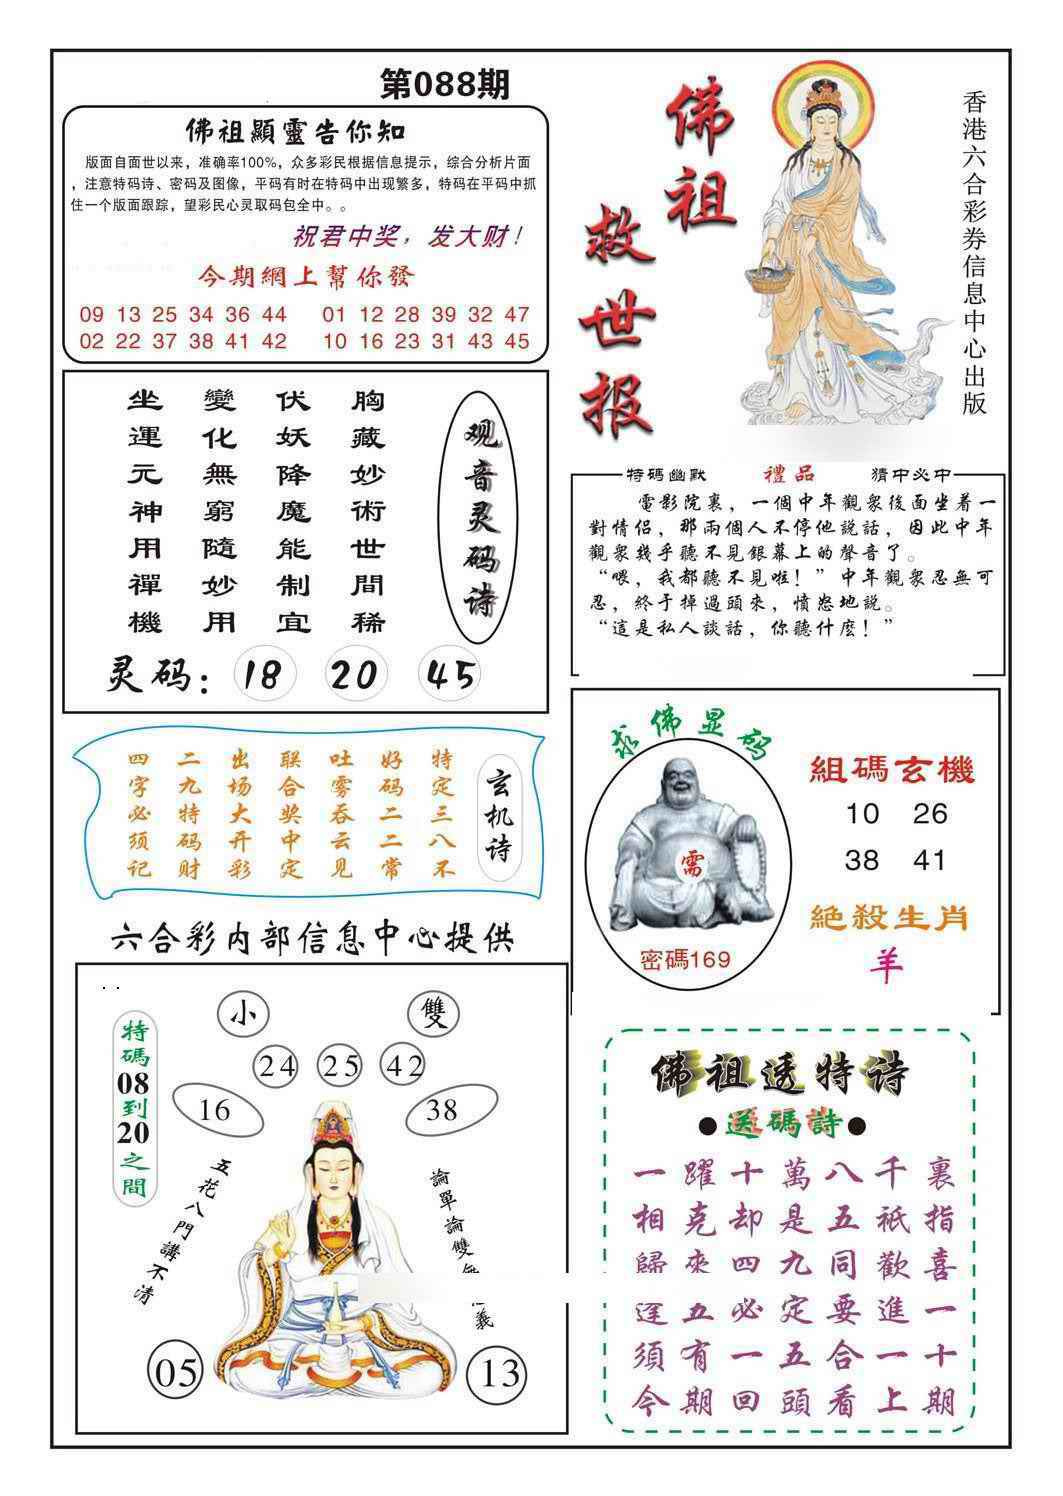 第088期
佛祖顯靈告你知
版面自面世以来，准确率100%，众多彩民根据信息提示，综合分析片面
，注意特码诗、密码及图像，平码有时在特码中出现繁多，特码在平码中抓
住一个版面跟踪，望彩民心灵取码包全中。。
祝君中奖，发大财！
今期網上幫你發
09 13 25 34 36 44 01 12 28 39 32 47
02 22 37 38 41 42 10 16 23 31 43 45
佛祖
救世报
香港六合彩券信息中心出版
观音灵码诗
胸藏妙術世間稀
伏妖降魔能制宜
變化無窮隨妙用
坐運元神用禪機
灵码：18 20 45
特碼幽默 禮品 猜中必中
電影院裏，一個中年觀衆後面坐着一
對情侣，那兩個人不停他説話，因此中年
觀衆幾乎聽不見銀幕上的聲音了。
“喂，我都聽不見啦！”中年觀衆忍無可
忍，終于掉過頭來，憤怒地説。
“這是私人談話，你聽什麽！”
玄机诗
特定三八不
好码二二常
吐雾吞云见
联合奖中定
出场大开彩
二九特码财
四字必须记
求佛显码
需
密碼169
組碼玄機
10 26
38 41
絶殺生肖
羊
六合彩内部信息中心提供
特碼08到20之間
小 雙
24 25 42
16 38
五花八門講不清
論單論雙無義
05 13
佛祖透特诗
●送碼詩●
一躍十萬八千裏
相克却是五祇指
歸來四九同歡喜
逢五必定要進一
須有一五合一十
今期回頭看上期